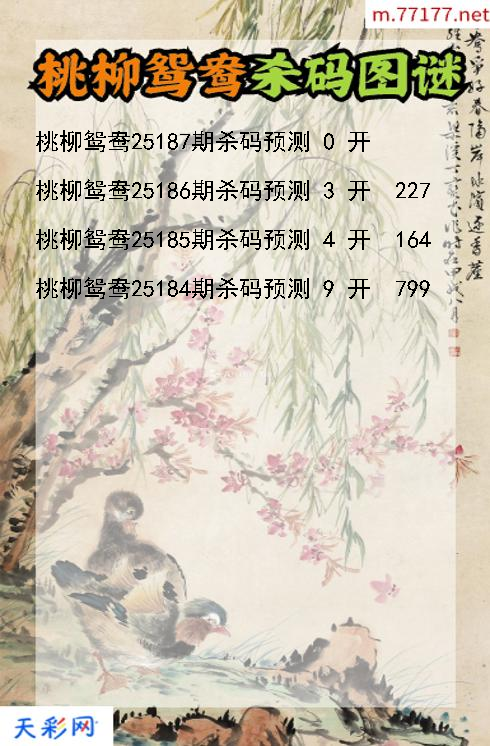 m.77177.net
桃柳鸳鸯杀码图谜
桃柳鸳鸯25187期杀码预测 0 开
桃柳鸳鸯25186期杀码预测 3 开 227
桃柳鸳鸯25185期杀码预测 4 开 164
桃柳鸳鸯25184期杀码预测 9 开 799
天彩网